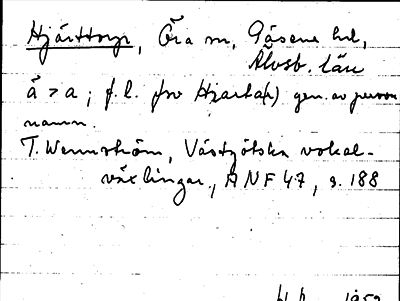 Hjärttorp, Öra sn, Gäsene hd,
Älvsb. län
ä > a ; f. l. fsv Hjarta(r) gen. av person
namn.
T. Wennström, Västgötska vokal-
växlingar, ANF 47, s. 188